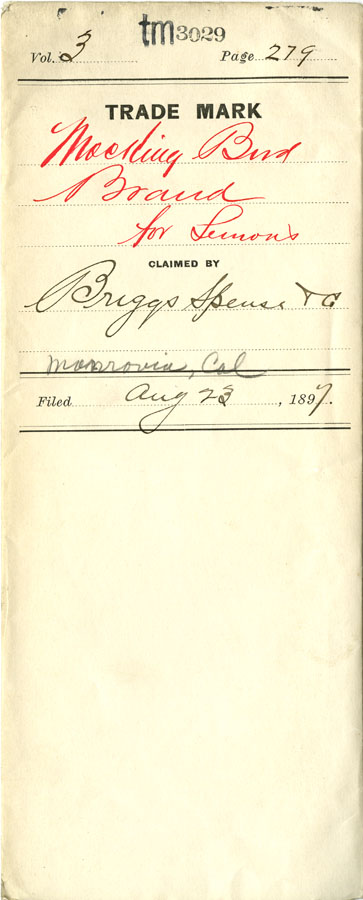 tm3029
Vol. 3 Page 279
TRADE MARK
Mocking Bird
Brand
for Lemons
CLAIMED BY
Briggs Spense & Co
Monrovia, Cal
Filed Aug 23, 1897.